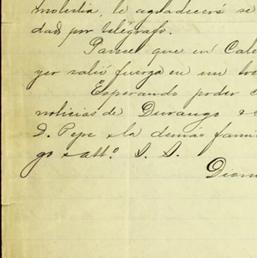 molestia, le agradeceré se
dad por telégrafo.
que en Cale
yer salió fuerza en un
Esperando poder
noticias de Durango
D. Pepe y la demás fami
go y atto. S. S.